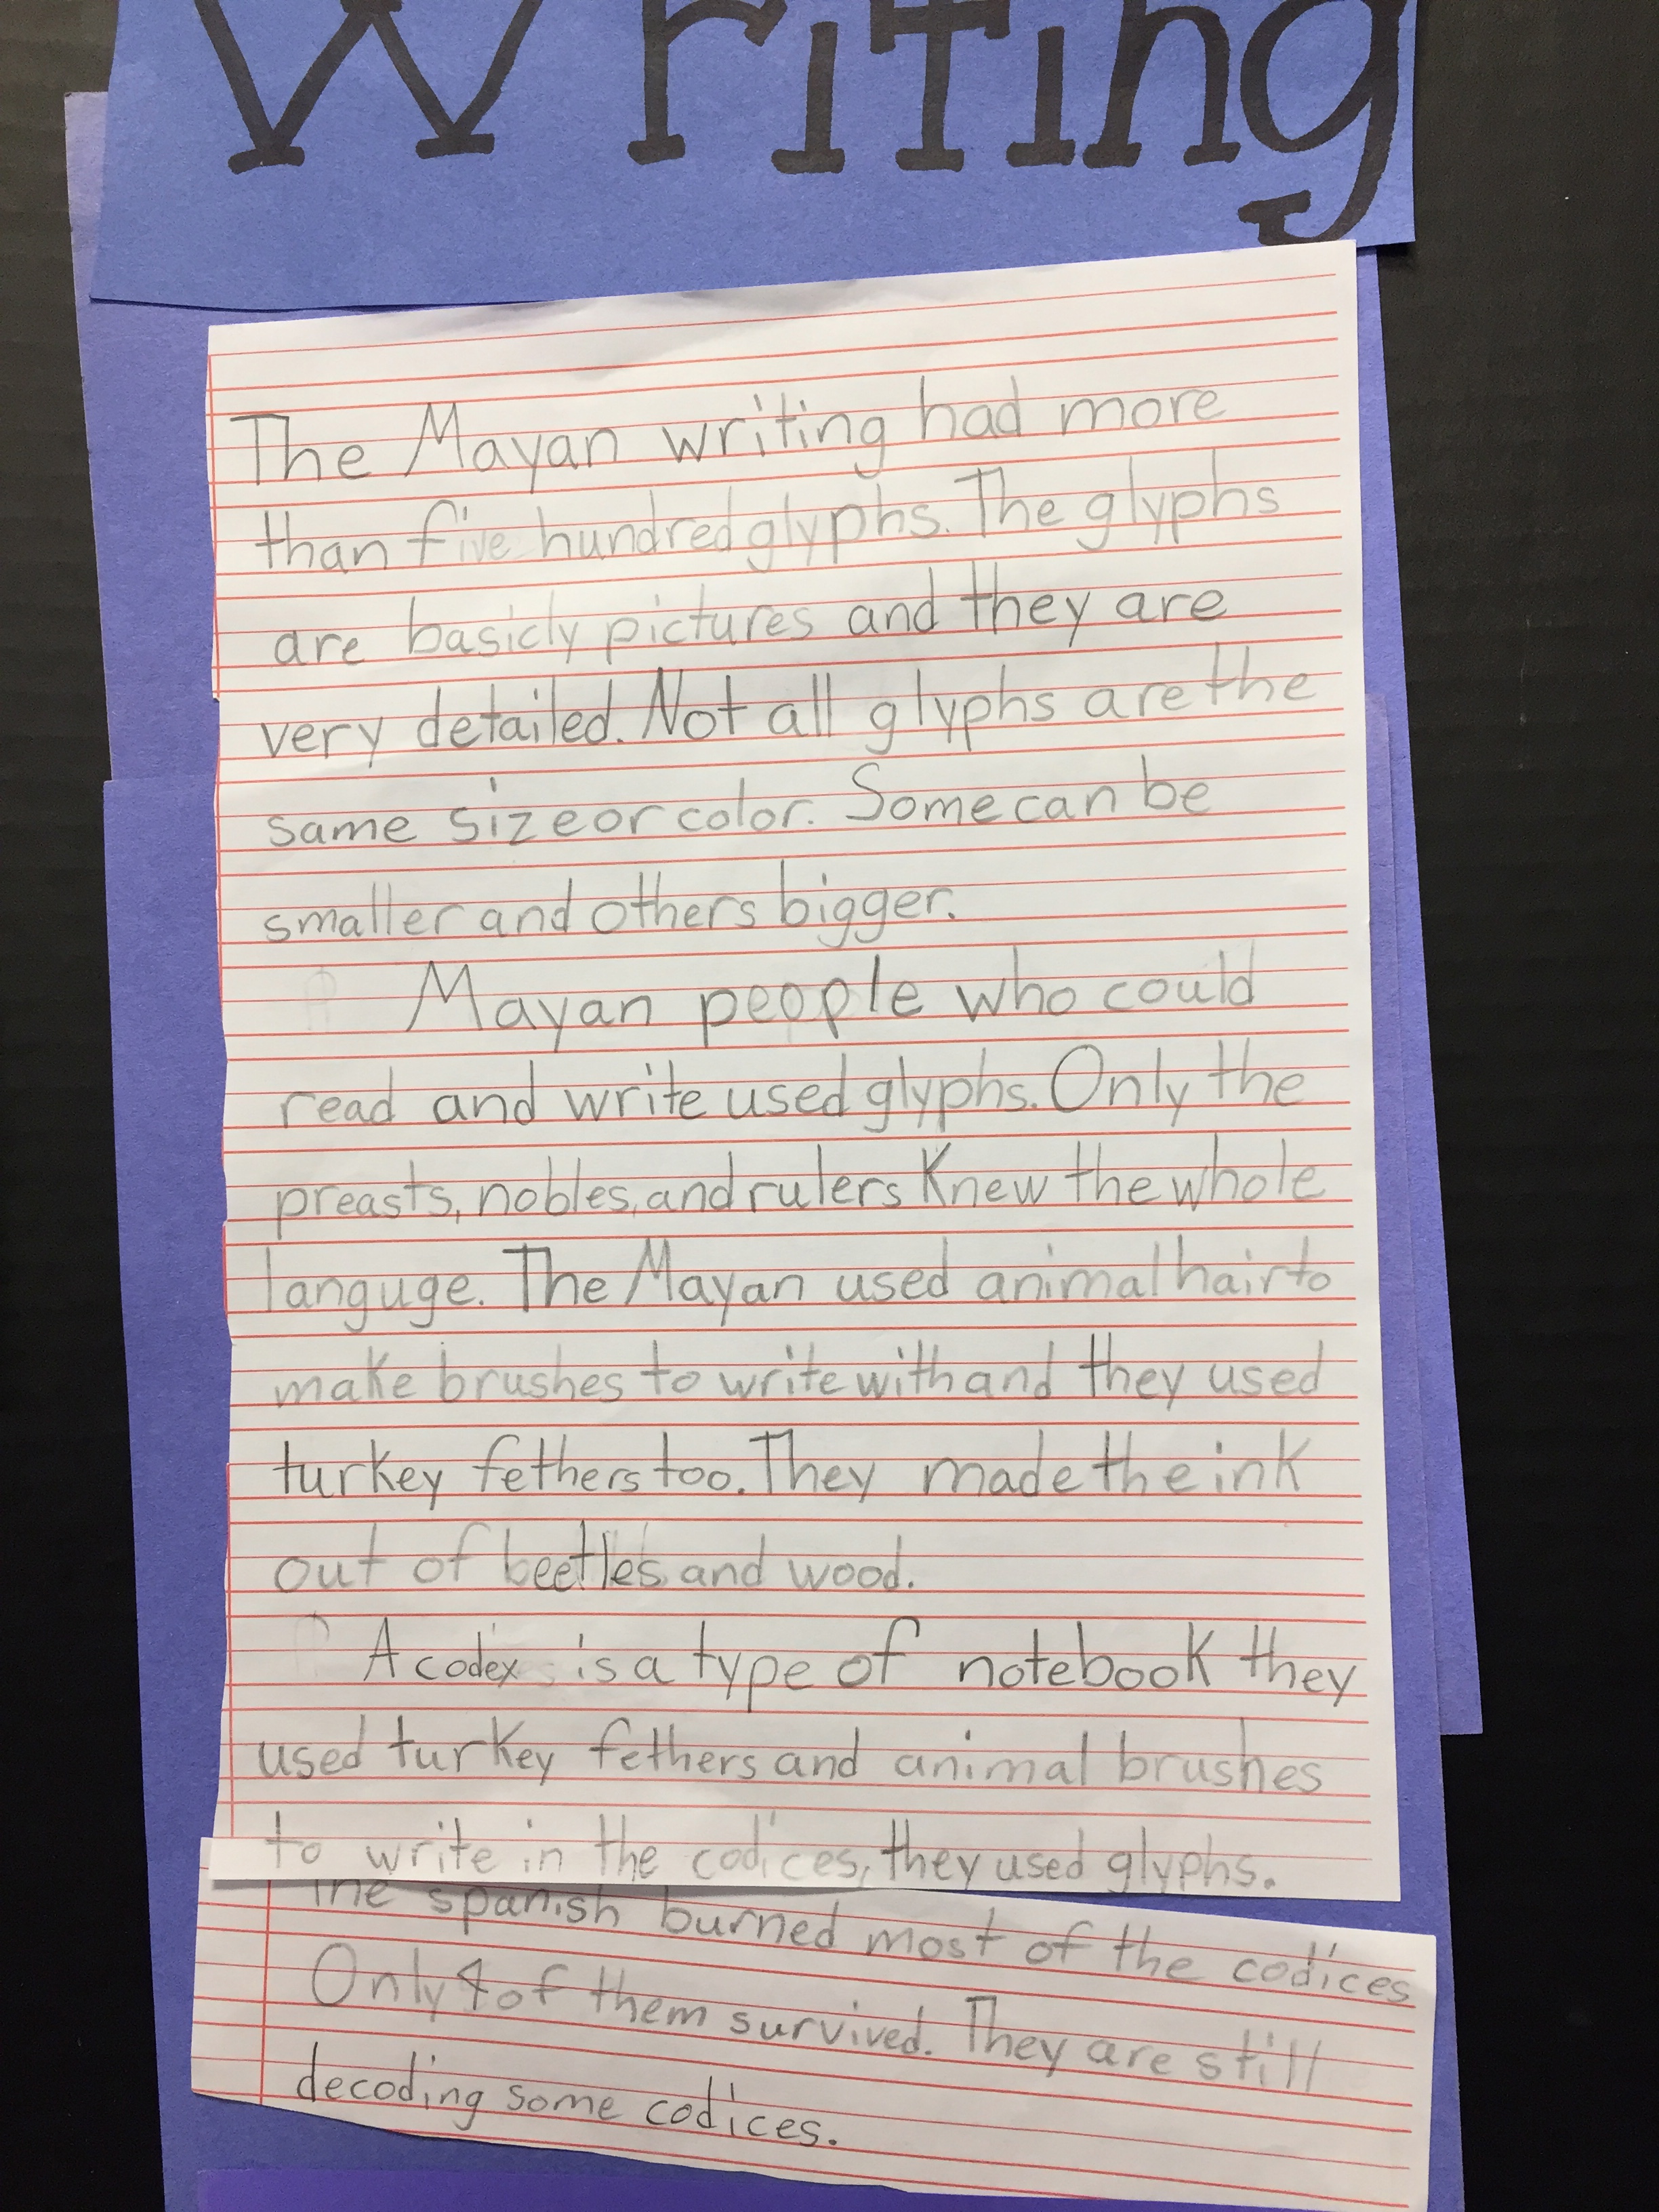 Writing
The Mayan writing had more
than five hundred glyphs. The glyphs
are basicly pictures and they are
very detailed. Not all glyphs are the
same size or color. Some can be
smaller and others bigger.
Mayan people who could
read and write used glyphs. Only the
preasts, nobles, and rulers Knew the whole
languge. The Mayan used animal hair to
make brushes to write with and they used
turkey fethers too. They made the ink
out of beetles and wood.
A codex is a type of notebook they
used turkey fethers and animal brushes
to write in the codices, they used glyphs.
The spanish burned most of the codices
Only 4 of them survived. They are still
decoding some codices.